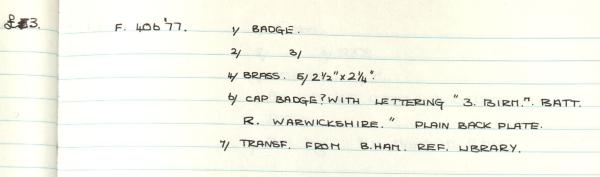 £3. F. 406'77. 1/ BADGE.
2/ 3/
4/ BRASS. 5/ 2½" x 2¼".
6/ CAP BADGE? WITH LETTERING "3. BIRM.M. BATT.
R. WARWICKSHIRE." PLAIN BACK PLATE.
7/ TRANSF. FROM B.HAM. REF. LIBRARY.